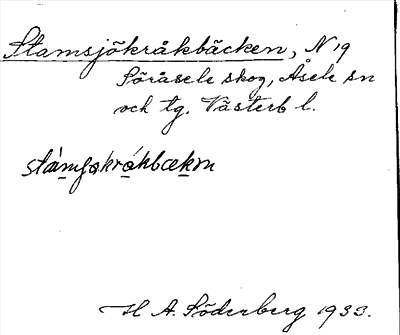 Stamsjökråkbäcken, N 19
Söråsele skog, Åsele sn
och tg. Västerb l.
H A. Söderberg 1933.